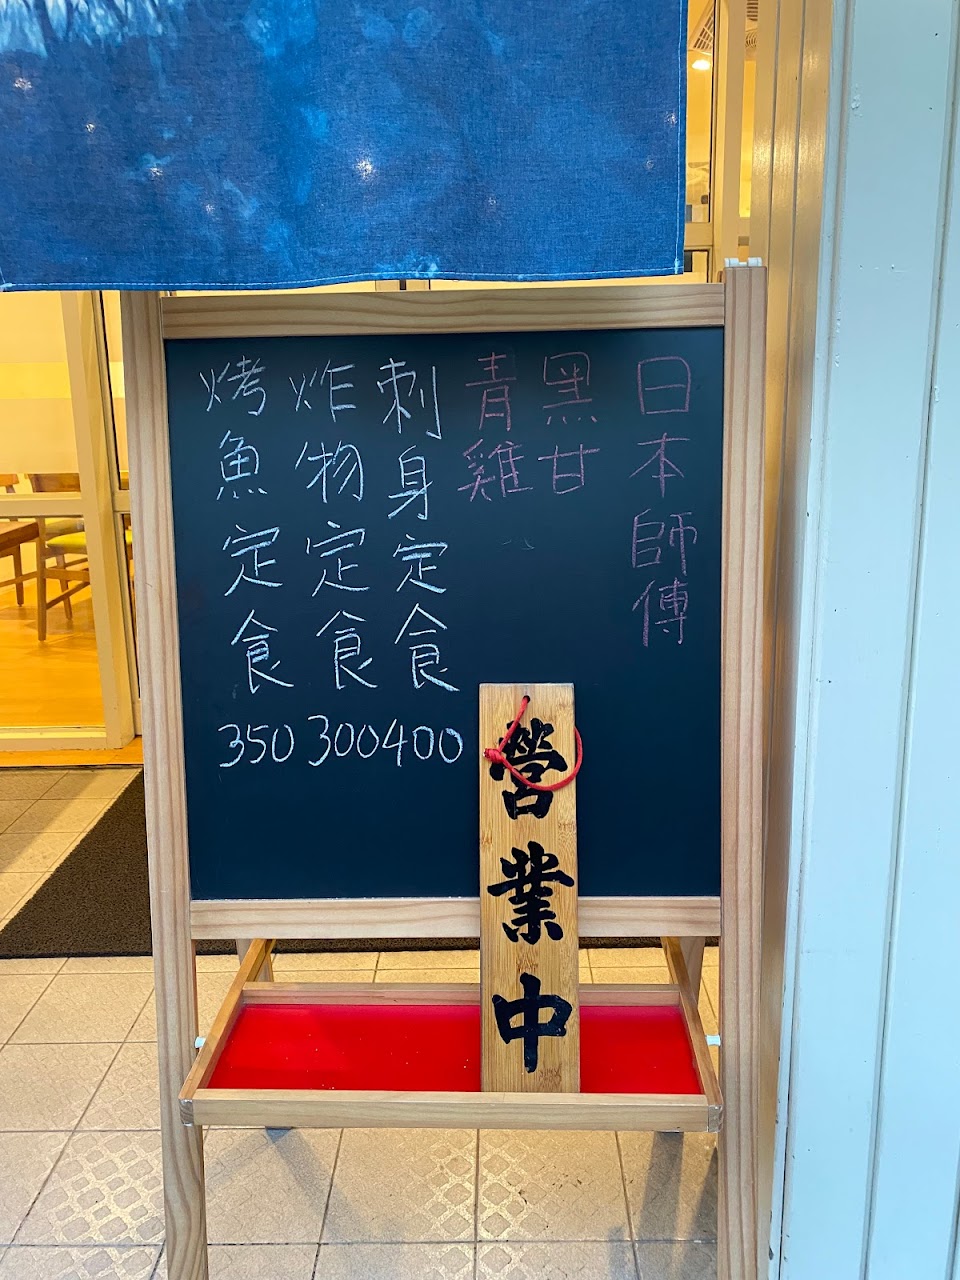 日本師傅
黑甘
青雞
刺身定食
400
炸物定食
300
烤魚定食
350
營業中